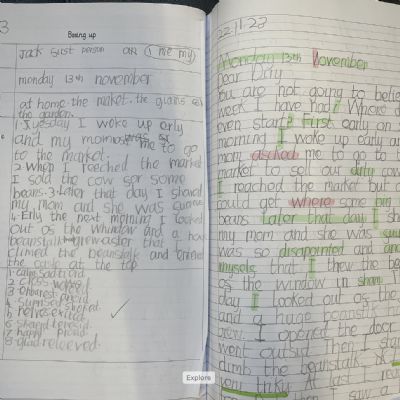 3
Boxing up
Jack Just person OR (I me my)
monday 13th november
at home the market. the giants
the garden.
1. Tuesday I woke up erly
and my mom me to go
to the market.
2. When I reached the market
I sold the cow for some
beans. 3. Later that day I showd
my mom and she was
4. Erly the next morning I looked
out os the whindow and a
beanstalk that I
climed the beanstalk and
the castle at the top
1. calm sad tired.
4. suprised shoked.
5. nervos exited.
7. happy Proud.
8. glad releoved.
22.11.23
Monday 13th November
Dear Dairy
You are not going to belie
week I have had! Where d
even start? First early on
morning I woke up early an
mom ascked me to go to
market to sell our dirty cow
I reached the market but
could get where some
beans Later that day I sh
my mom and she was
was so disapointed and
mysels that I threw the be
os the window in sham
day I looked out os the
and a huge beanstalk
grew. I opened the door
went outsid. Then I star
climb the beanstalk. It
very triky. At last I rea
then I saw a
Explore